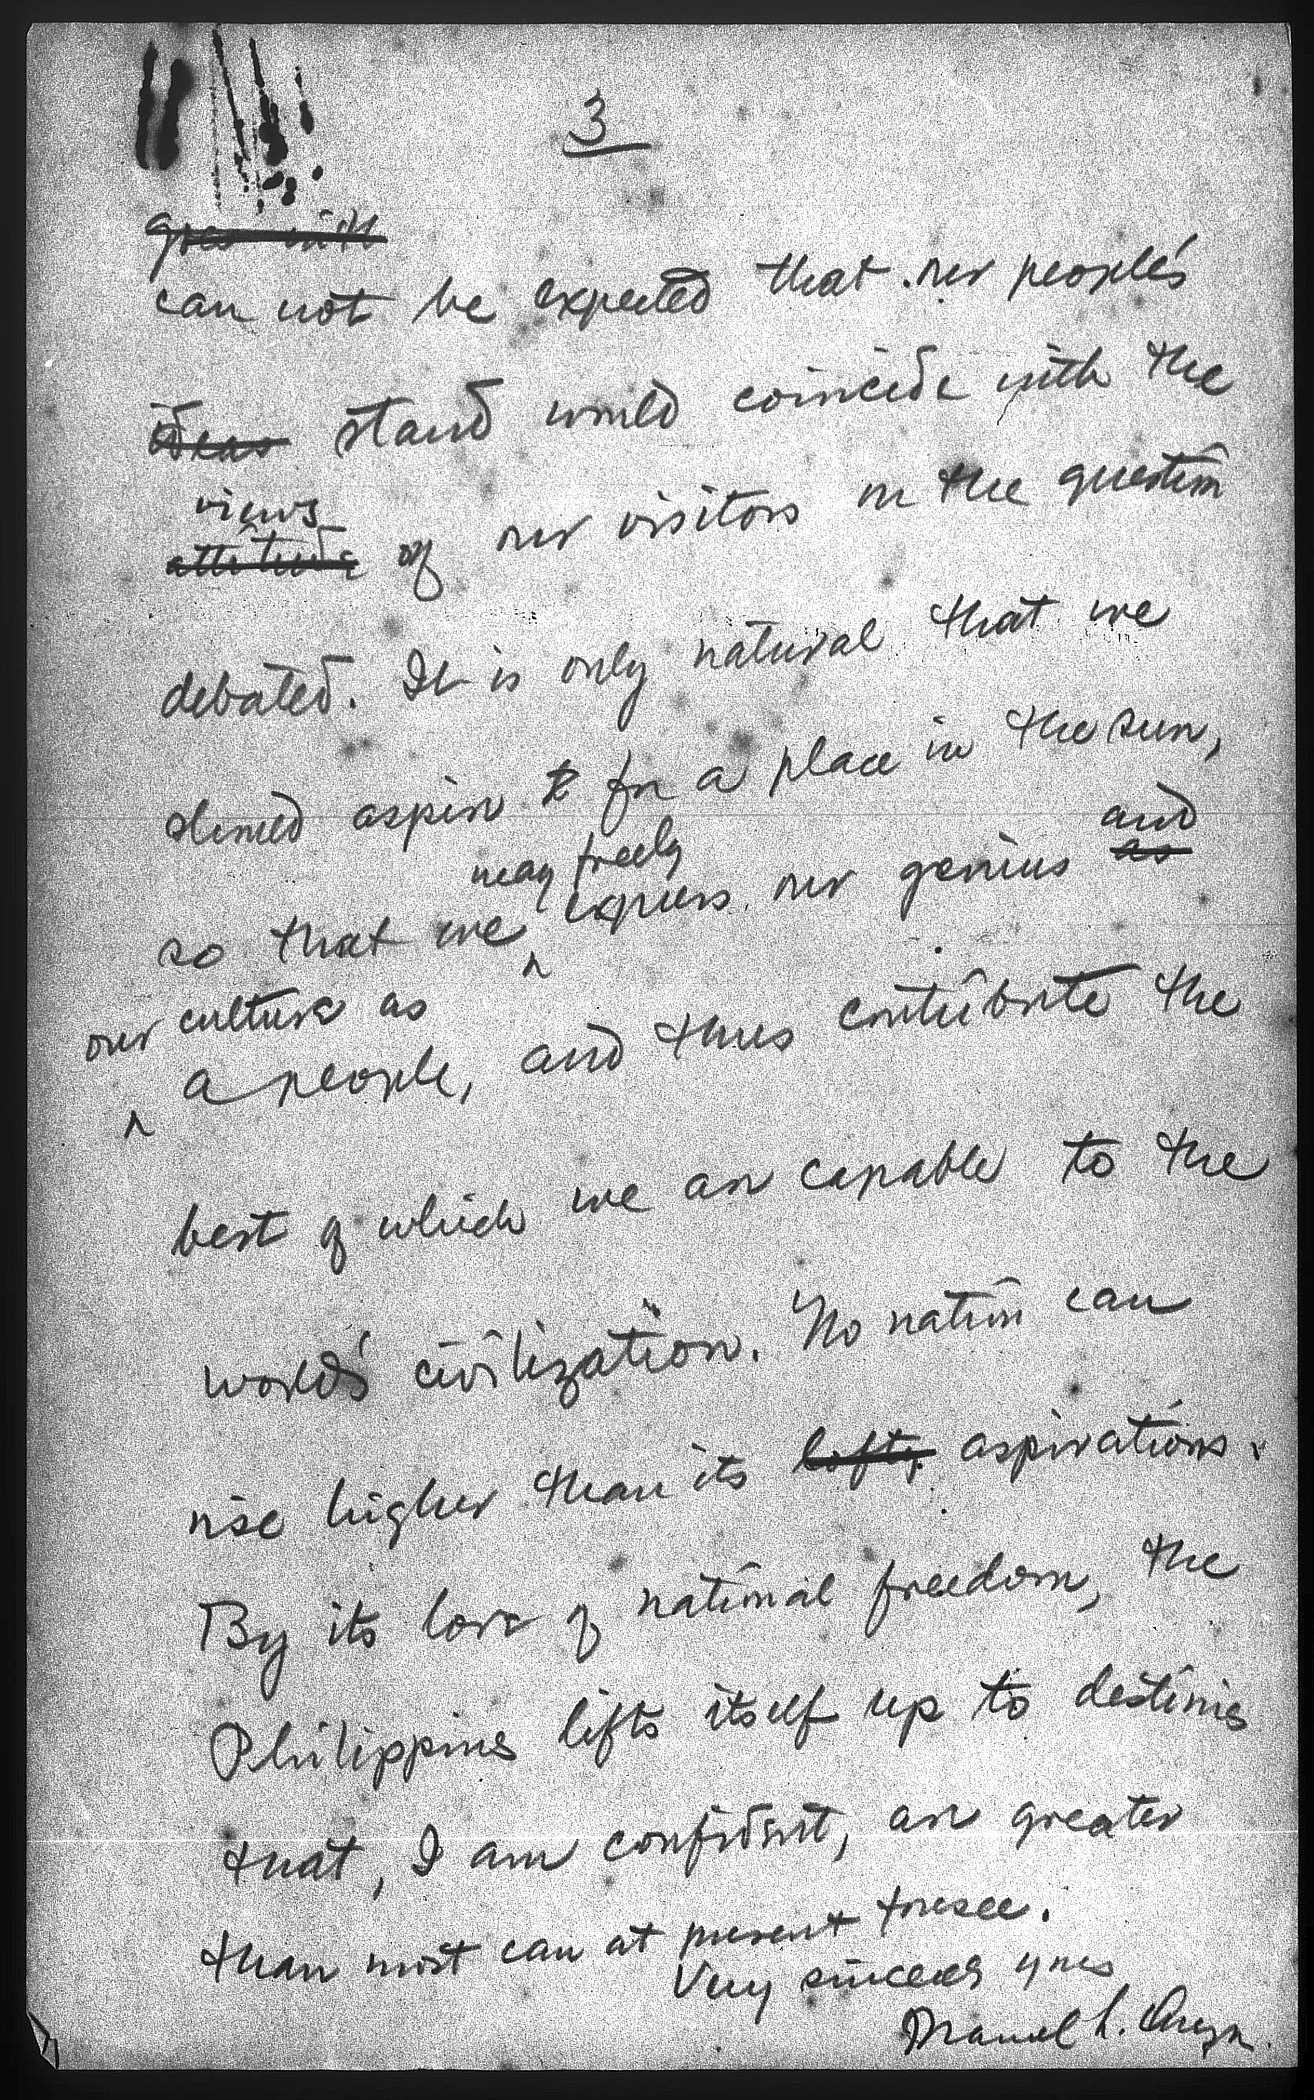 3
goes with
can not be expected that our people's
ideas stand would coincide with the
views
attitude of our visitors on the question
debated. It is only natural that we
should aspire to for a place in the sun,
and
may freely
so that we ^ express our genius as
our culture as
^ a people, and thus contribute the
best of which we are capable to the
world's civilization. No nation can
rise higher than its lofty aspirations.
By its love of national freedom, the
Philippines lifts itself up to destinies
that, I am confident, are greater
than most can at present foresee.
Very sincerely yours
Manuel L. Quezon.